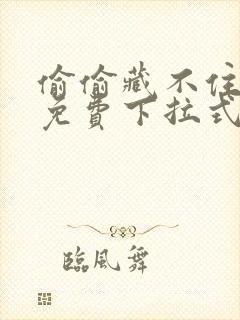 偷偷藏不住
免費下拉式
臨風舞